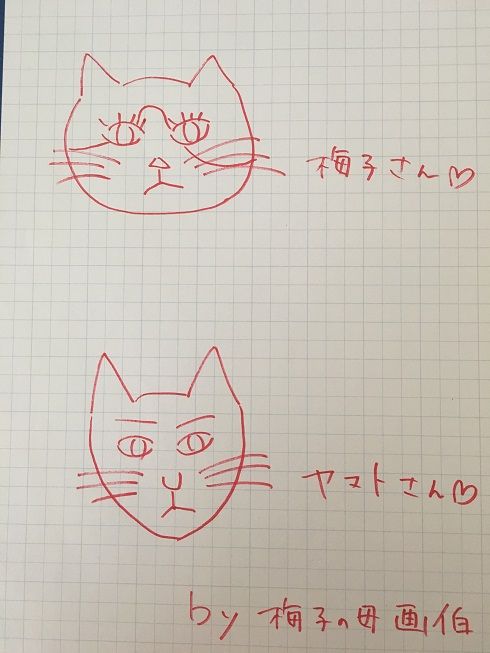 梅子さん♡
ヤマトさん♡
by 梅子の母画伯